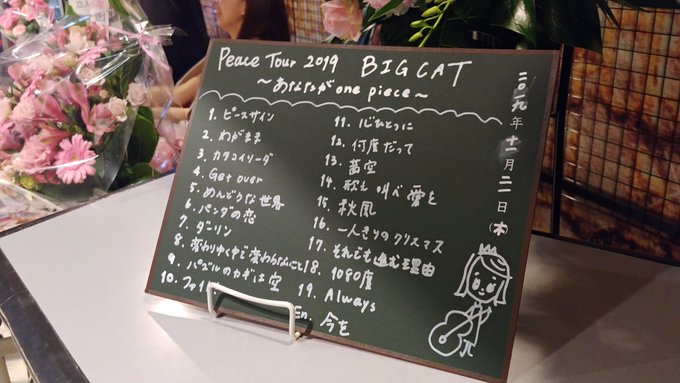 Peace Tour 2019 BIGCAT
〜あなたが one piece〜
1. ピースサイン
2. わがまま
3. カタコイリーダ
4. Get over
5. めんどうな世界
6. パンダの恋
7. ダーリン
8. 変わりゆく中で変わらないこと
9. パズルのカギは空
10. ファイ
11. 心ひとつに
12. 何度だって
13. 茜空
14. 歌え 叫べ 愛を
15. 秋風
16. 一人きりのクリスマス
17. それでも進む理由
18. 1080度
19. Always
En. 今を
二〇一九年十二月二日(木)